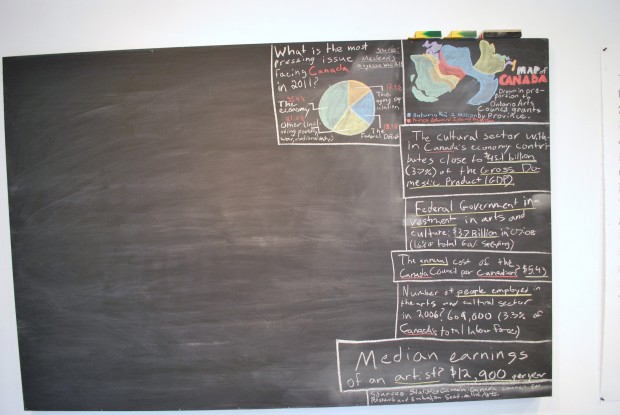 What is the most
pressing issue
facing Canada
in 2011?
Source:
Maclean's
magazine
The
economy
Other (incl
uding poverty,
The
aging pop
ulation
The
Federal Deficit
A MAP of
CANADA
Drawn in pro-
portion to
Ontario Arts
Council grants
by Province.
The cultural sector with-
in Canada's economy contri
butes close to $46.1 billion
(3.7%) of the Gross Do-
mestic Product (GDP)
Federal Government in-
vestment in arts and
culture: $3.7 Billion in 07-08
The annual cost of the
Canada Council per Canadian? $5.43
Number of people employed in
the arts and cultural sector
in 2006? 609,000 (3.3% of
Canada's total labour force)
Median earnings
of an artist? $12,900 per year
Sources: Statistics Canada, Canada Council for